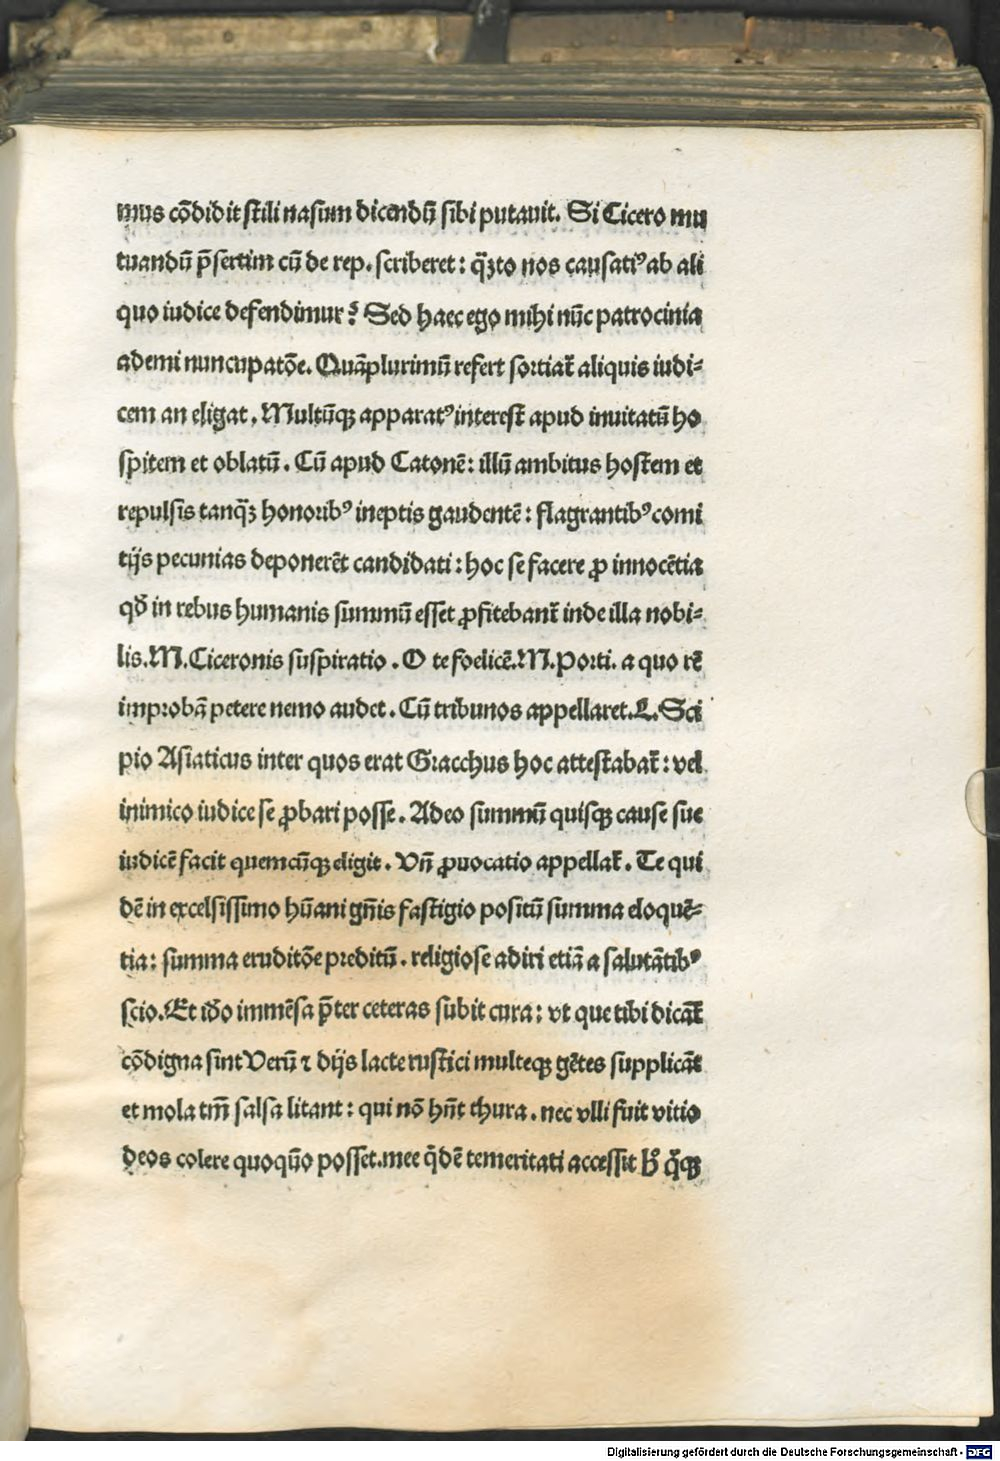 mus cōdidit ſtili naſum dicendū ſibi putauit. Si Cicero mu
tuandū p̄ſertim cū de rep. ſcriberet: q̄ꝫto nos cauſatiꝰ ab ali
quo iudice defendimur? Sed haec ego mihi nūc patrocinia
ademi nuncupatōe. Quāplurimū refert ſortiat̄ aliquis iudi-
cem an eligat. Multūqꝫ apparatꝰ intereſt apud inuitatū ho
ſpitem et oblatū. Cū apud Catonē: illū ambitus hoſtem et
repulſis tanq̄ꝫ honoribꝰ ineptis gaudentē: flagrantibꝰ comi
tijs pecunias deponerēt candidati: hoc ſe facere ꝓ innocētia
qđ in rebus humanis ſummū eſſet ꝓfitebant̄ inde illa nobi-
lis. M. Ciceronis ſuſpiratio. O te foelicē. M. Porti. a quo rē
improbā petere nemo audet. Cū tribunos appellaret. L. Sci
pio Aſiaticus inter quos erat Gracchus hoc atteſtabat̄: vel
inimico iudice ſe ꝓbari poſſe. Adeo ſummū quiſqꝫ cauſe ſue
iudicē facit quemcūqꝫ eligit. Vñ ꝓuocatio appellat̄. Te qui
dē in excelſiſſimo hūani gñis faſtigio poſitū ſumma eloquē-
tia: ſumma eruditōe preditū. religioſe adiri etiā a ſalutātibꝰ
ſcio. Et iđo immēſa p̄ter ceteras ſubit cura: vt que tibi dicāt̄
cōdigna ſint Verū ⁊ dijs lacte ruſtici multeqꝫ gētes ſupplicāt
et mola tm̄ ſalſa litant: qui nō hñt thura. nec vlli fuit vitio
deos colere quoquō poſſet. mee q̄dē temeritati acceſſit hͦ q̄qꝫ
Digitalisierung gefördert durch die Deutsche Forschungsgemeinschaft - DFG